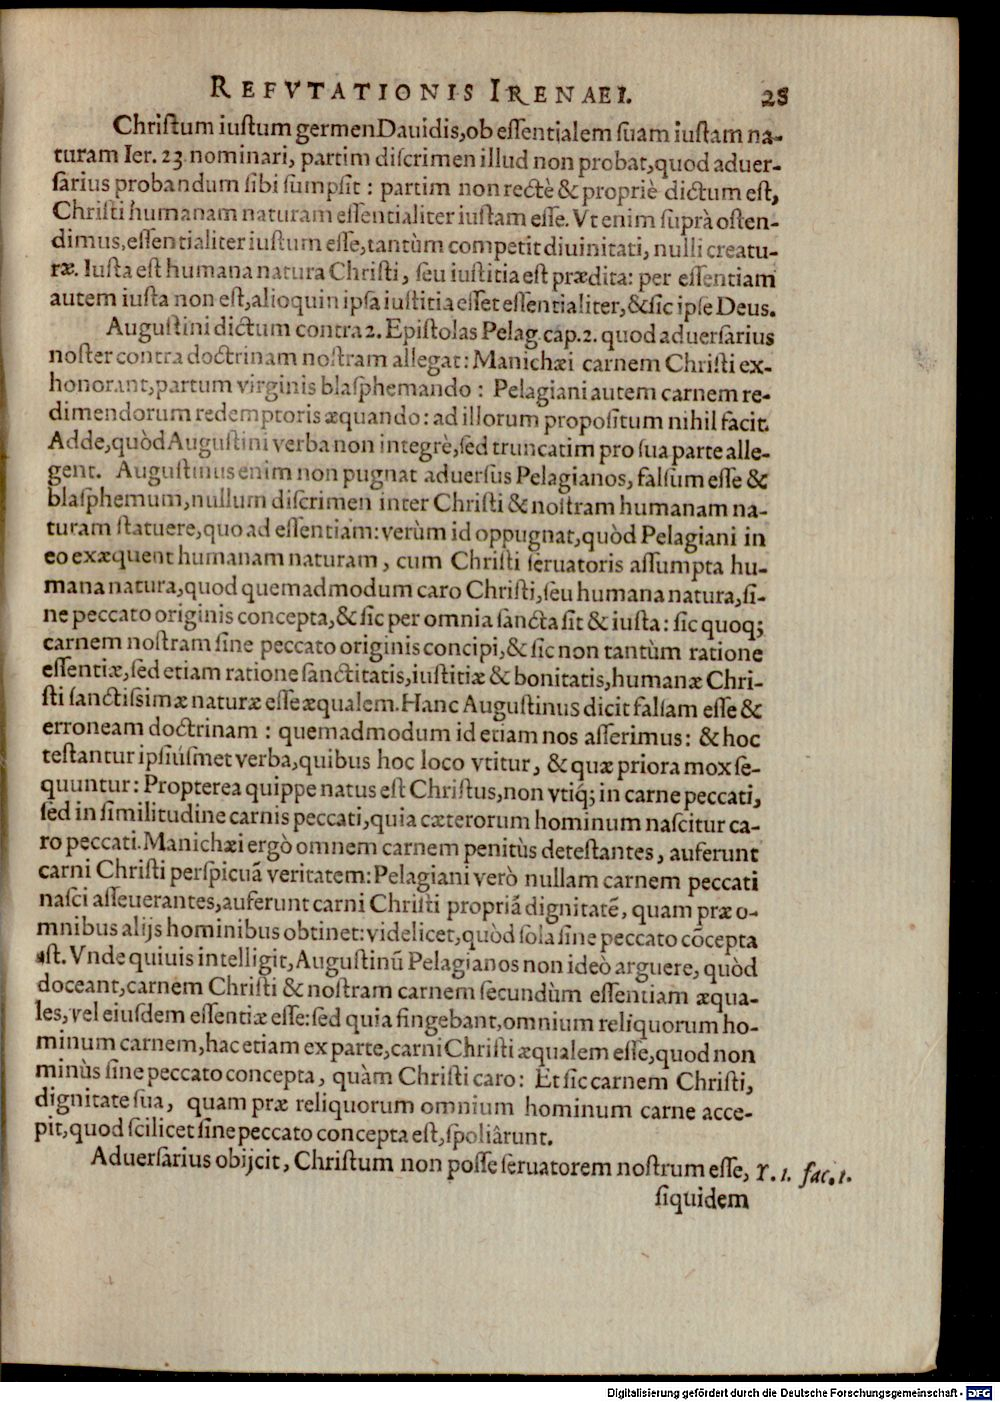 REFVTATIONIS IRENAEI. 28
Chriſtum iuſtum germen Dauidis, ob eſſentialem ſuam iuſtam na-
turam Ier. 23 nominari, partim diſcrimen illud non probat, quod aduer-
ſarius probandum ſibi ſumpſit: partim non rectè & propriè dictum eſt,
Chriſti humanam naturam eſſentialiter iuſtam eſſe. Vt enim ſuprà oſten-
dimus, eſſentialiter iuſtum eſſe, tantùm competit diuinitati, nulli creatu-
ræ. Iuſta eſt humana natura Chriſti, ſeu iuſtitia eſt prædita: per eſſentiam
autem iuſta non eſt, alioquin ipſa iuſtitia eſſet eſſentialiter, & ſic ipſe Deus.
Auguſtini dictum contra 2. Epiſtolas Pelag. cap. 2. quod aduerſarius
noſter contra doctrinam noſtram allegat: Manichæi carnem Chriſti ex-
honorant, partum virginis blaſphemando: Pelagiani autem carnem re-
dimendorum redemptoris æquando: ad illorum propoſitum nihil facit.
Adde, quòd Auguſtini verba non integrè, ſed truncatim pro ſua parte alle-
gent. Auguſtinus enim non pugnat aduerſus Pelagianos, falſum eſſe &
blaſphemum, nullum diſcrimen inter Chriſti & noſtram humanam na-
turam ſtatuere, quo ad eſſentiam: verùm id oppugnat, quòd Pelagiani in
eo exæquent humanam naturam, cum Chriſti ſeruatoris aſſumpta hu-
mana natura, quod quemadmodum caro Chriſti, ſeu humana natura, ſi-
ne peccato originis concepta, & ſic per omnia ſancta ſit & iuſta: ſic quoq;
carnem noſtram ſine peccato originis concipi, & ſic non tantùm ratione
eſſentiæ, ſed etiam ratione ſanctitatis, iuſtitiæ & bonitatis, humanæ Chri-
ſti ſanctiſsimæ naturæ eſſe æqualem. Hanc Auguſtinus dicit falſam eſſe &
erroneam doctrinam: quemadmodum id etiam nos aſſerimus: & hoc
teſtantur ipſiúſmet verba, quibus hoc loco vtitur, & quæ priora mox ſe-
quuntur: Propterea quippe natus eſt Chriſtus, non vtiq́; in carne peccati,
ſed in ſimilitudine carnis peccati, quia cæterorum hominum naſcitur ca-
ro peccati. Manichæi ergò omnem carnem penitùs deteſtantes, auferunt
carni Chriſti perſpicuã veritatem: Pelagiani verò nullam carnem peccati
naſci aſſeuerantes, auferunt carni Chriſti propriã dignitatẽ, quam præ o-
mnibus alijs hominibus obtinet: videlicet, quòd ſola ſine peccato cõcepta
eſt. Vnde quiuis intelligit, Auguſtinũ Pelagianos non ideò arguere, quòd
doceant, carnem Chriſti & noſtram carnem ſecundùm eſſentiam æqua-
les, vel eiuſdem eſſentiæ eſſe: ſed quia fingebant, omnium reliquorum ho-
minum carnem, hac etiam ex parte, carni Chriſti æqualem eſſe, quod non
minùs ſine peccato concepta, quàm Chriſti caro: Et ſic carnem Chriſti,
dignitate ſua, quam præ reliquorum omnium hominum carne acce-
pit, quod ſcilicet ſine peccato concepta eſt, ſpoliârunt.
Aduerſarius obijcit, Chriſtum non poſſe ſeruatorem noſtrum eſſe, r. 1. fac. 1.
ſiquidem
Digitalisierung gefördert durch die Deutsche Forschungsgemeinschaft - DFG